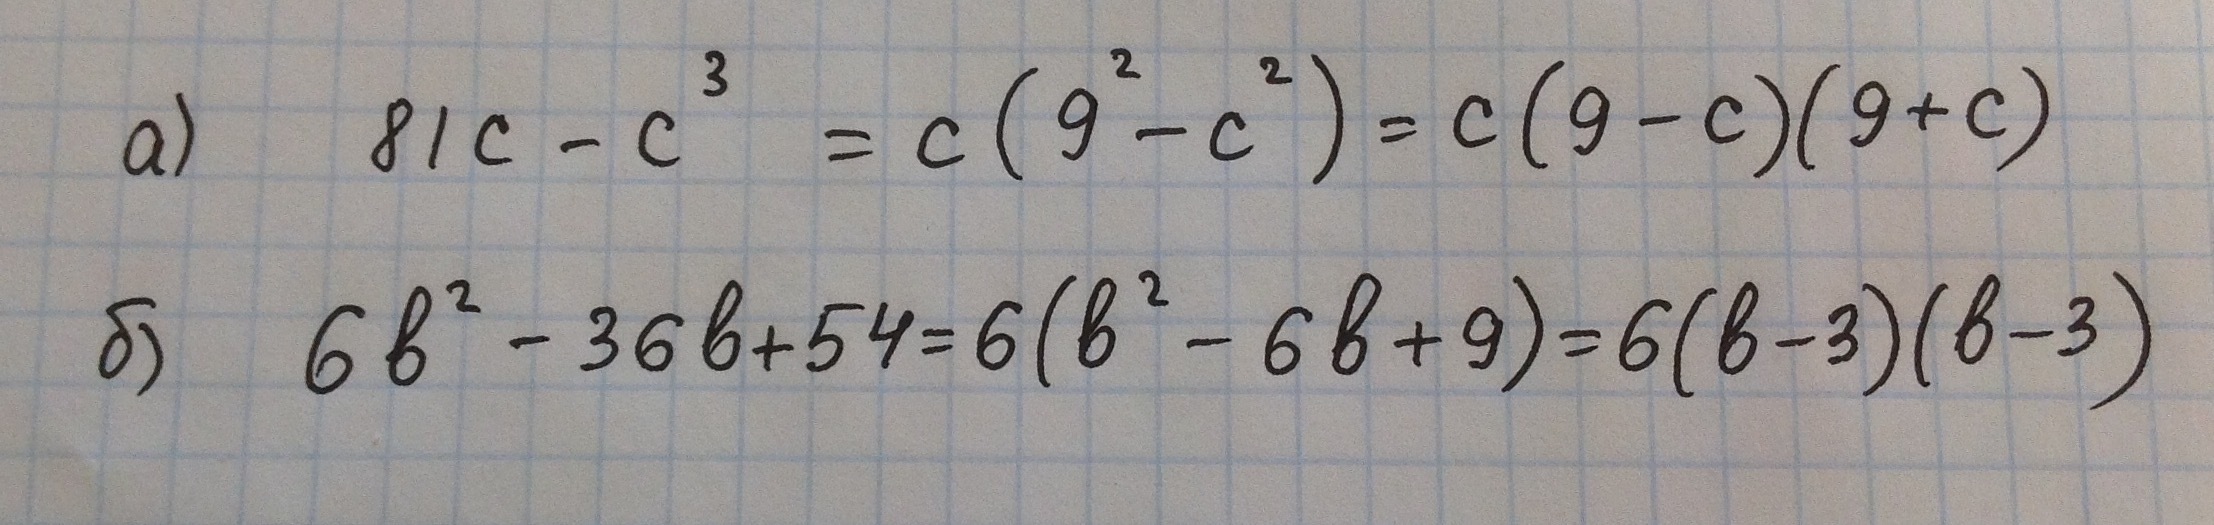 а) 81c - c³ = c(9² - c²) = c(9 - c)(9 + c)
б) 6b² - 36b + 54 = 6(b² - 6b + 9) = 6(b - 3)(b - 3)